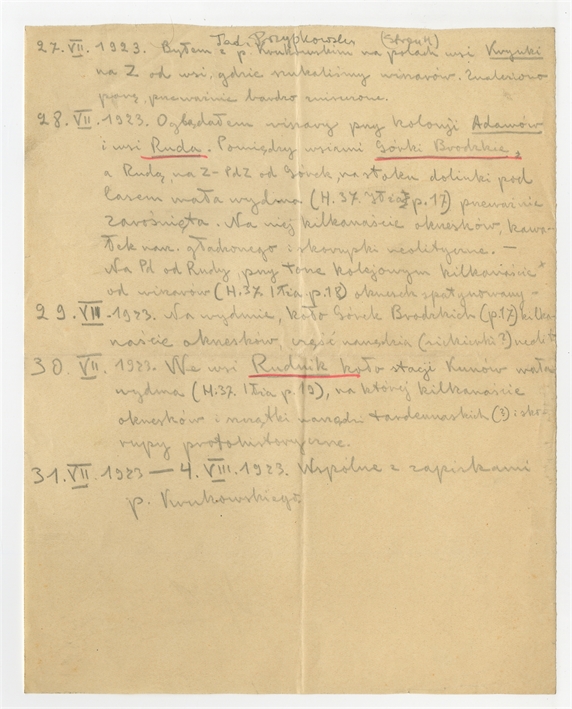 Tad. Przypkowski
27.VII.1923. Byłem z p. Krukowskim na polach wsi Krzynki
na Z od wsi, gdzie szukaliśmy wiszarów. Znaleziono
parę, przeważnie bardzo zniszczone.
28.VII.1923. Oglądałem wiszary przy kolonji Adamów
i wsi Ruda. Pomiędzy wsiami Górki Brodzkie,
a Rudą, na Z-PdZ od Górek, na stoku dolinki pod
lasem mała wydma (H.37 Iłża p.17) przeważnie
zarośnięta. Na niej kilkanaście okresków, kawa-
łek narz. gładzonego i skorupki neolityczne. —
Na Pd od Rudy, przy torze kolejowym kilkanaście
od wiszarów (H.37 Iłża p.18) okresek spatynowany —
29.VII.1923. Na wydmie, koło Górek Brodzkich (p.17) kilka-
naście okresków, część narzędzia (siekierki?) neolit.
30.VII.1923. We wsi Rudnik koło stacji Kunów mała
wydma (H.37. Iłża p.19), na której kilkanaście
okresków i szczątki narzędzi tardenuaskich (?) i sko-
rupy protohistoryczne.
31.VII.1923 — 4.VIII.1923. Wspólne z zapiskami
p. Krukowskiego.